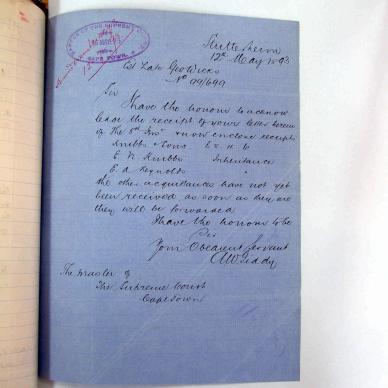 MASTER OF THE SUPREME COURT
CAPE TOWN
Stutterheim
12th May 1893
Est Late Geo Wicks
No 99/699
Sir
I have the honor to acknow
ledge the receipt of your letter herein
of the 8th Inst & now enclose receipts
Knibbs & Sons
E. N. Knibbs Inheritance
E. A. Reynolds "
the other acquittances have not yet
been received as soon as they are
they will be forwarded
I have the honor to be
Sir
Your Obedient Servant
The Master of
The Supreme Court
Cape Town